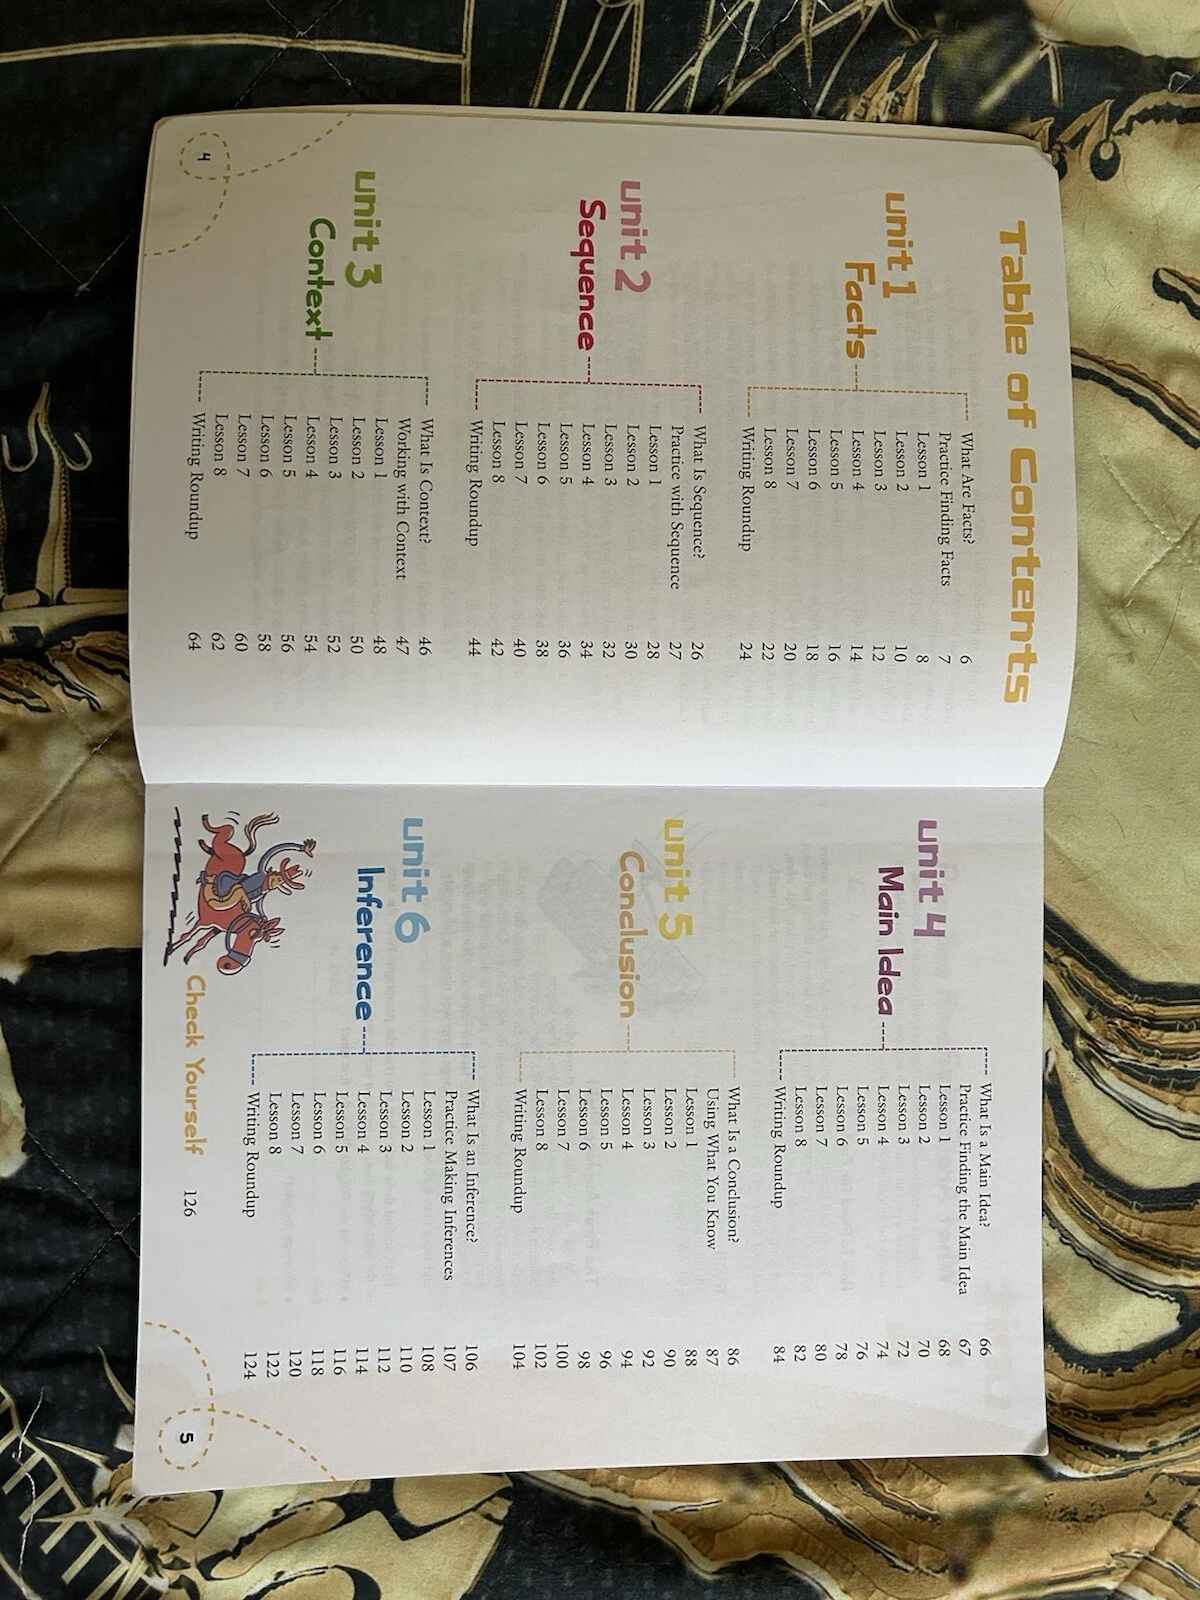 Table of Contents
unit 1
Facts
What Are Facts? 6
Practice Finding Facts 7
Lesson 1 8
Lesson 2 10
Lesson 3 12
Lesson 4 14
Lesson 5 16
Lesson 6 18
Lesson 7 20
Lesson 8 22
Writing Roundup 24
unit 2
Sequence
What Is Sequence? 26
Practice with Sequence 27
Lesson 1 28
Lesson 2 30
Lesson 3 32
Lesson 4 34
Lesson 5 36
Lesson 6 38
Lesson 7 40
Lesson 8 42
Writing Roundup 44
unit 3
Context
What Is Context? 46
Working with Context 47
Lesson 1 48
Lesson 2 50
Lesson 3 52
Lesson 4 54
Lesson 5 56
Lesson 6 58
Lesson 7 60
Lesson 8 62
Writing Roundup 64
4
unit 4
Main Idea
What Is a Main Idea? 66
Practice Finding the Main Idea 67
Lesson 1 68
Lesson 2 70
Lesson 3 72
Lesson 4 74
Lesson 5 76
Lesson 6 78
Lesson 7 80
Lesson 8 82
Writing Roundup 84
unit 5
Conclusion
What Is a Conclusion? 86
Using What You Know 87
Lesson 1 88
Lesson 2 90
Lesson 3 92
Lesson 4 94
Lesson 5 96
Lesson 6 98
Lesson 7 100
Lesson 8 102
Writing Roundup 104
unit 6
Inference
What Is an Inference? 106
Practice Making Inferences 107
Lesson 1 108
Lesson 2 110
Lesson 3 112
Lesson 4 114
Lesson 5 116
Lesson 6 118
Lesson 7 120
Lesson 8 122
Writing Roundup 124
Check Yourself 126
5